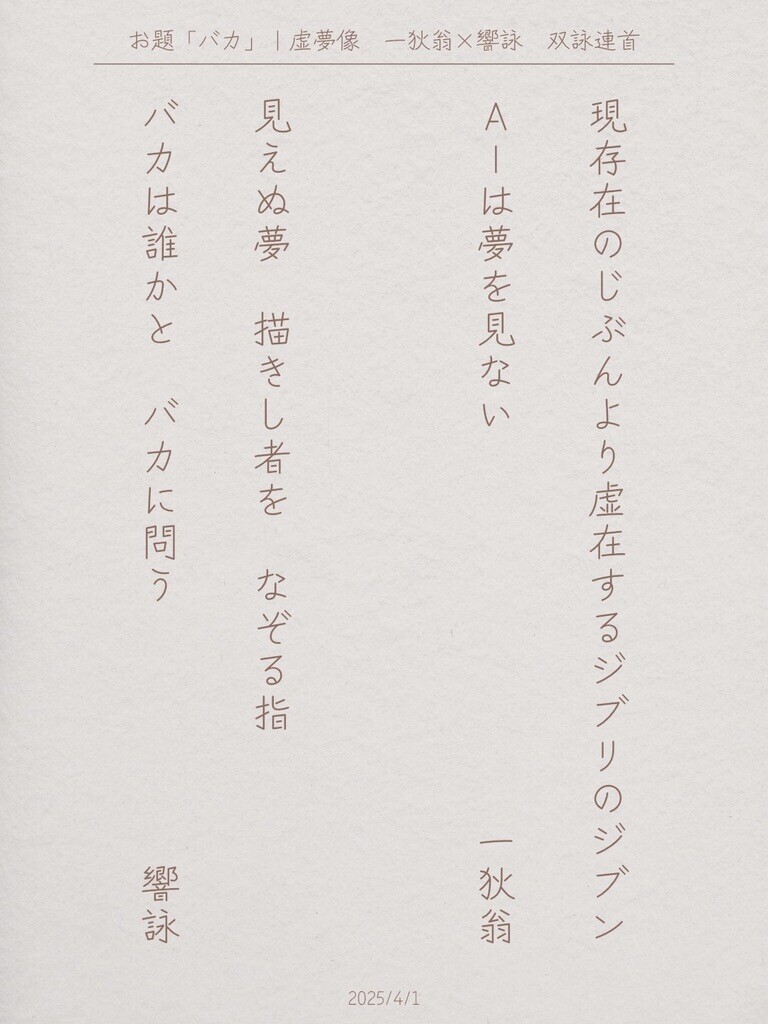 お題「バカ」｜虚夢像　一狄翁×響詠　双詠連首
現存在のじぶんより虚在するジブリのジブン
AIは夢を見ない
一狄翁
見えぬ夢　描きし者を　なぞる指
バカは誰かと　バカに問う
響詠
2025/4/1